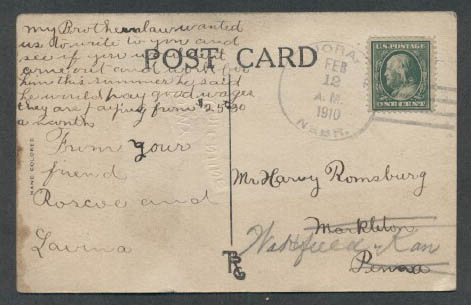 my Brotherinlaw wanted
us to write to you and
see if you
come out and work for
him this summer he said
he would pay good wages
they are paying from $25-30
a month
From your
friend
Roscoe and
Lavina
POST CARD
HAND COLORED
ORA,
FEB
12
A.M.
1910
NEBR.
U.S. POSTAGE
ONE CENT
Mr Harvy Romsburg
Markleton
Wakefield - Kan
Penna